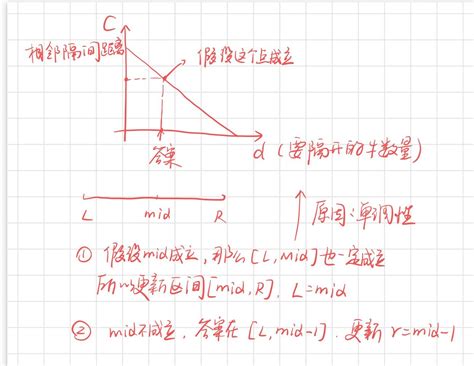 C
相邻隔间距离
假设这个点成立
答案
d (要隔开的牛数量)
L mid R
原因:单调性
① 假设mid成立,那么[L,mid]也一定成立
所以更新区间[mid,R]. L=mid
② mid不成立,答案在[L,mid-1]. 更新 r=mid-1